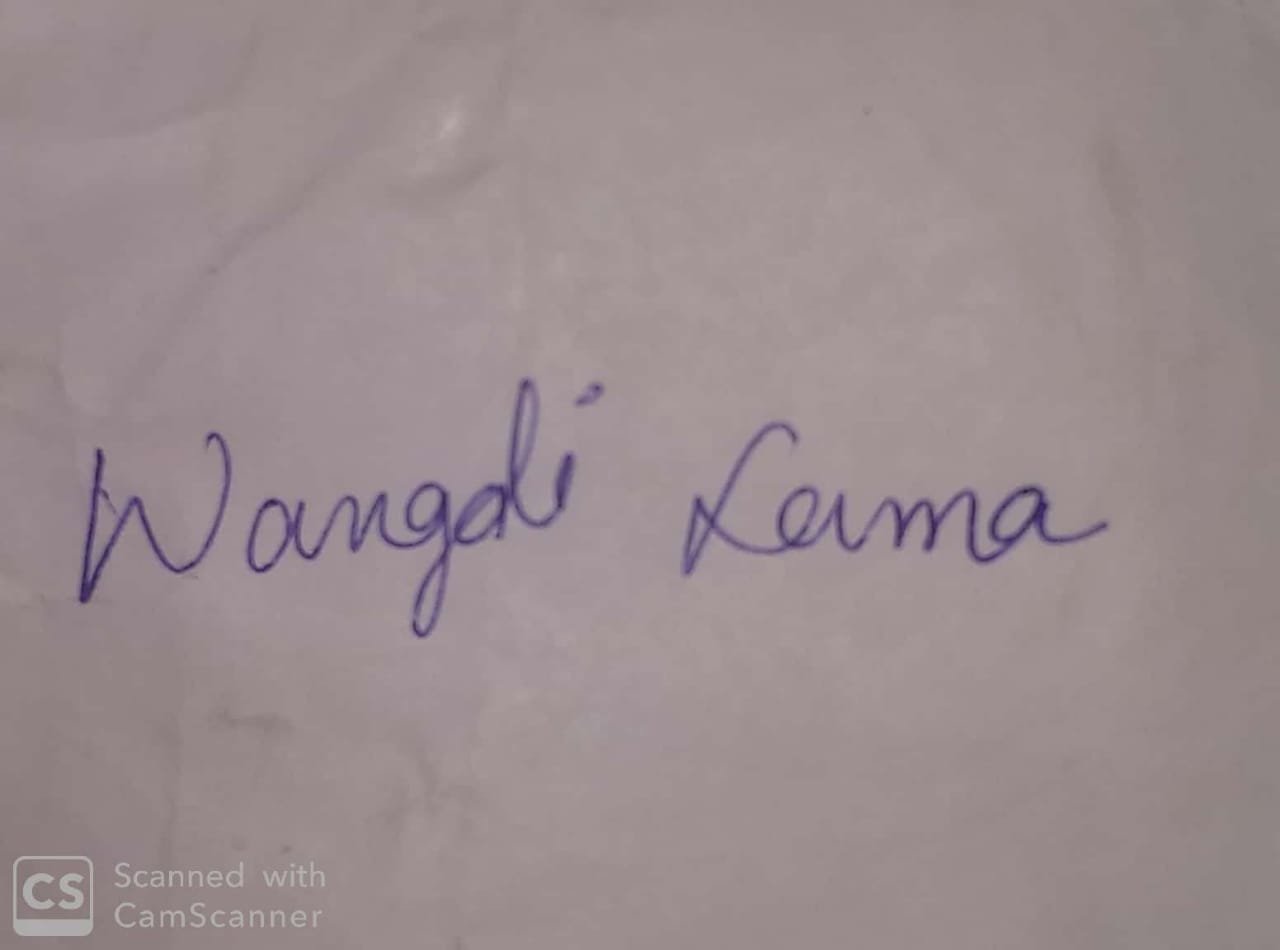 Wangdi Lama
CS Scanned with
CamScanner